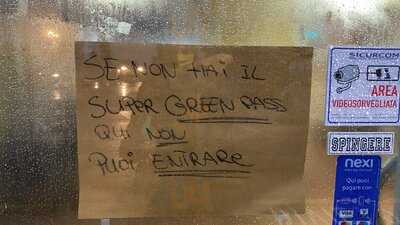 SE NON HAI IL
SUPER GREEN PASS
QUI NON
PUOI ENTRARE
SICURCOM
AREA
VIDEOSORVEGLIATA
SPINGERE
nexi
Qui puoi
pagare con
VISA